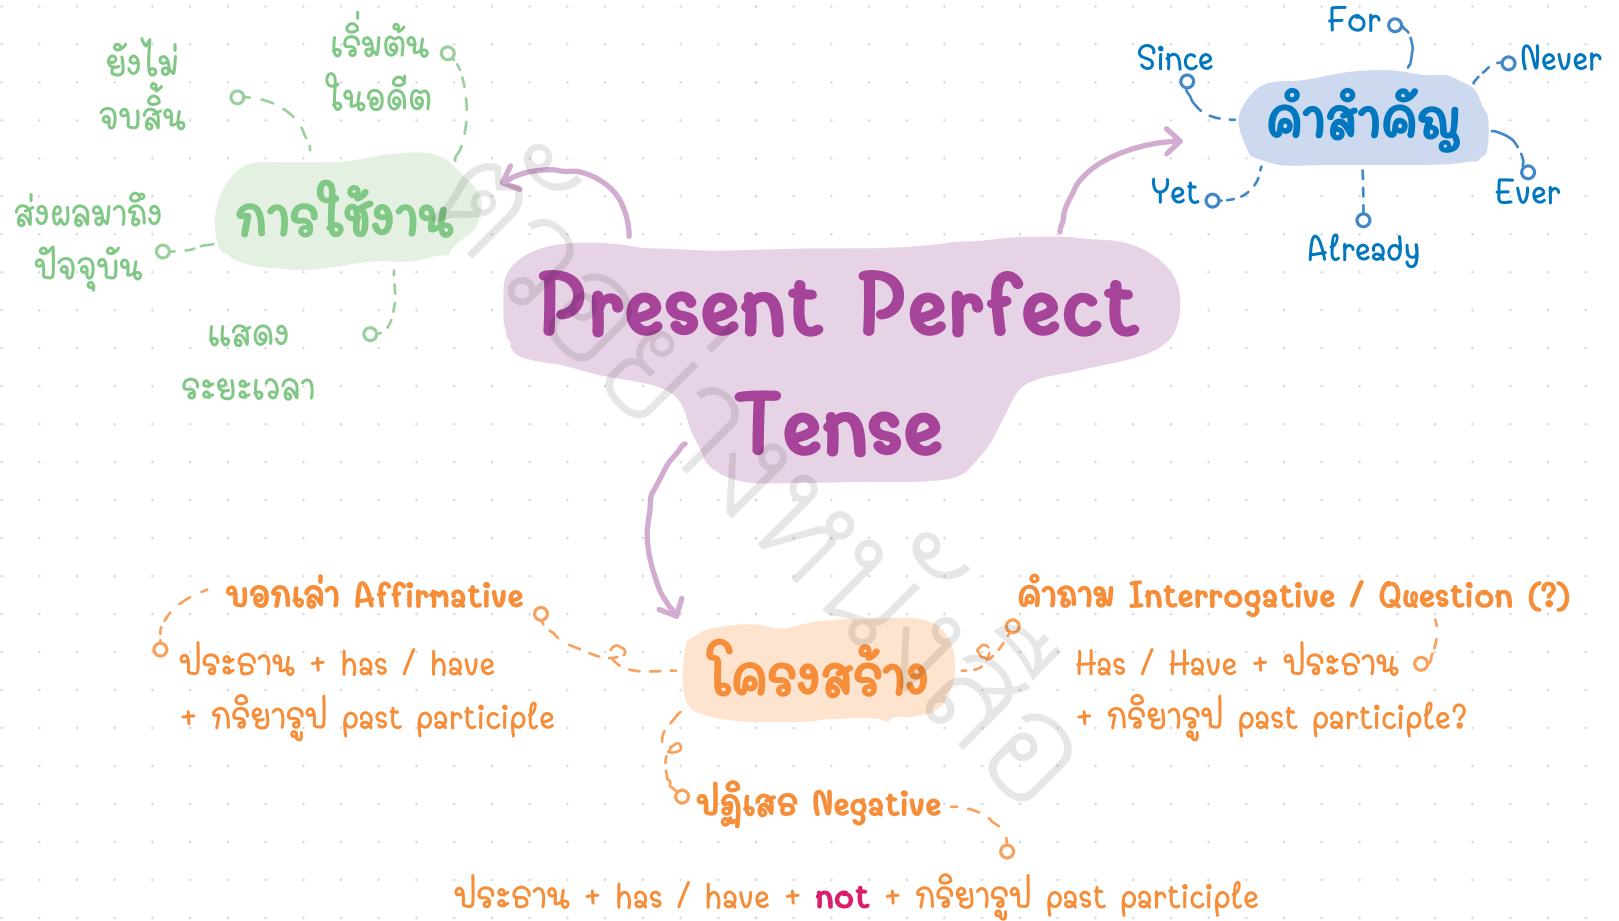 Present Perfect
Tense
การใช้งาน
เริ่มต้น
ในอดีต
ยังไม่
จบสิ้น
ส่งผลมาถึง
ปัจจุบัน
แสดง
ระยะเวลา
คำสำคัญ
Since
For
Never
Ever
Already
Yet
โครงสร้าง
บอกเล่า Affirmative
ประธาน + has / have
+ กริยารูป past participle
คำถาม Interrogative / Question (?)
Has / Have + ประธาน
+ กริยารูป past participle?
ปฏิเสธ Negative
ประธาน + has / have + not + กริยารูป past participle
ตัวอย่างหนังสือ